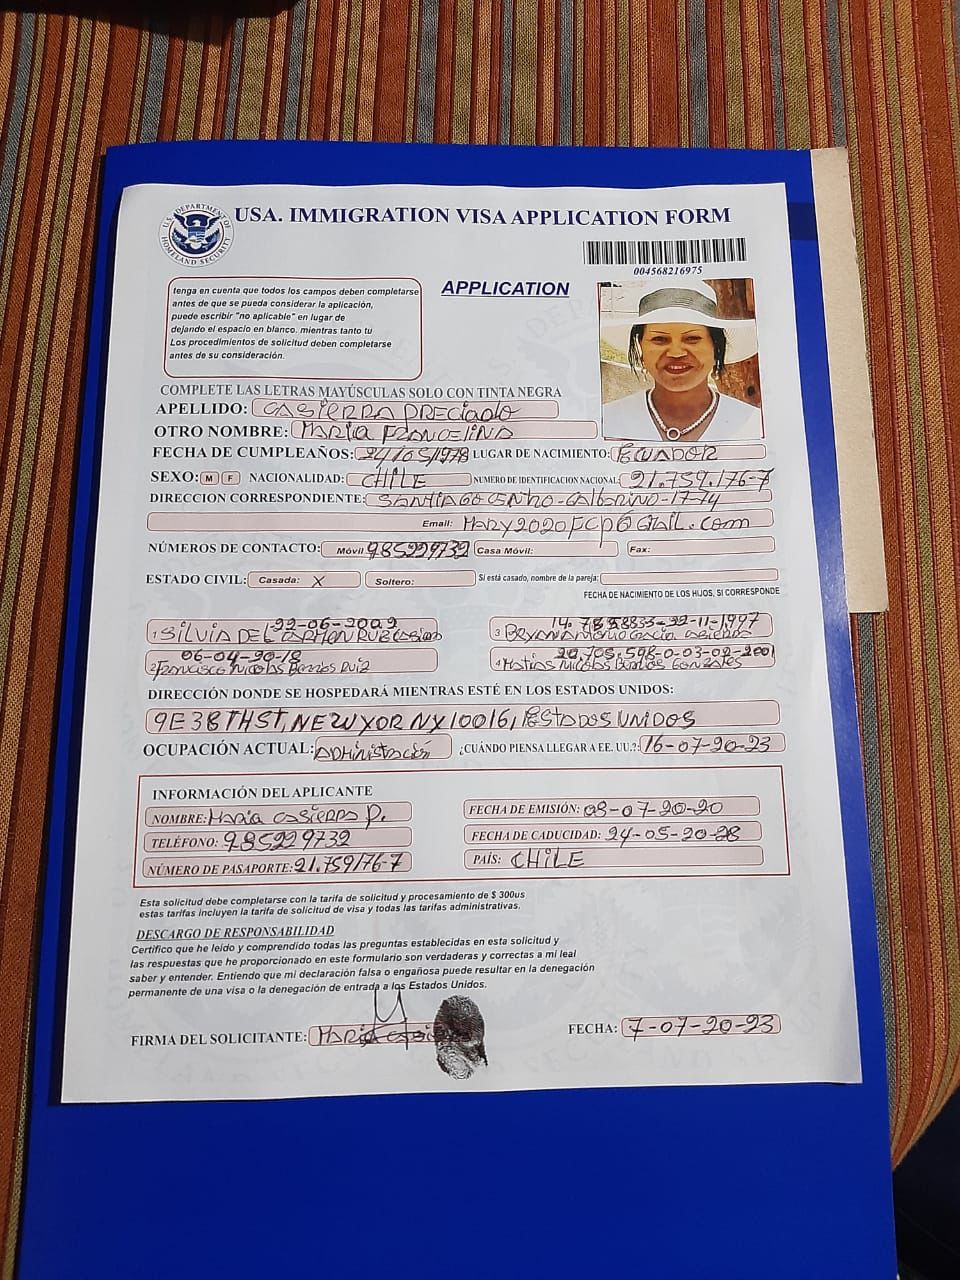 U.S. DEPARTMENT OF HOMELAND SECURITY
USA. IMMIGRATION VISA APPLICATION FORM
004568216975
APPLICATION
tenga en cuenta que todos los campos deben completarse
antes de que se pueda considerar la aplicación,
puede escribir "no aplicable" en lugar de
dejando el espacio en blanco. mientras tanto tu
Los procedimientos de solicitud deben completarse
antes de su consideración.
COMPLETE LAS LETRAS MAYÚSCULAS SOLO CON TINTA NEGRA
APELLIDO: CASIERRA PRECIADO
OTRO NOMBRE: MARIA FRANCELINA
FECHA DE CUMPLEAÑOS: 24/05/1978 LUGAR DE NACIMIENTO: ECUADOR
SEXO: M F NACIONALIDAD: CHILE NUMERO DE IDENTIFICACION NACIONAL: 21.759.176-7
DIRECCION CORRESPONDIENTE: SANTIAGO CENTRO-GALVARINO-17-14
Email: MARY2020FCP6
NÚMEROS DE CONTACTO: Móvil 985229732 Casa Móvil: Fax:
ESTADO CIVIL: Casada: X Soltero: Si está casado, nombre de la pareja:
FECHA DE NACIMIENTO DE LOS HIJOS, SI CORRESPONDE
22-06-2009
1 SILVIA DEL CARMEN
3
06-04-20-18
2 Francisco Nicolas
20.705.598-0-03-02-2001
4 Matias Nicolas
DIRECCIÓN DONDE SE HOSPEDARÁ MIENTRAS ESTÉ EN LOS ESTADOS UNIDOS:
9E38THST, NEWYOR NY10016, ESTADOS UNIDOS
OCUPACIÓN ACTUAL: ADMINISTRACIÓN ¿CUÁNDO PIENSA LLEGAR A EE. UU.?: 16-07-20-23
INFORMACIÓN DEL APLICANTE
NOMBRE: MARIA CASIERRA P. FECHA DE EMISIÓN: 03-07-20-20
TELÉFONO: 985229732 FECHA DE CADUCIDAD: 24-05-20-28
NÚMERO DE PASAPORTE: 21.759176-7 PAÍS: CHILE
Esta solicitud debe completarse con la tarifa de solicitud y procesamiento de $ 300us
estas tarifas incluyen la tarifa de solicitud de visa y todas las tarifas administrativas.
DESCARGO DE RESPONSABILIDAD
Certifico que he leído y comprendido todas las preguntas establecidas en esta solicitud y
las respuestas que he proporcionado en este formulario son verdaderas y correctas a mi leal
saber y entender. Entiendo que mi declaración falsa o engañosa puede resultar en la denegación
permanente de una visa o la denegación de entrada a los Estados Unidos.
FIRMA DEL SOLICITANTE: MARIA FECHA: 7-07-20-23